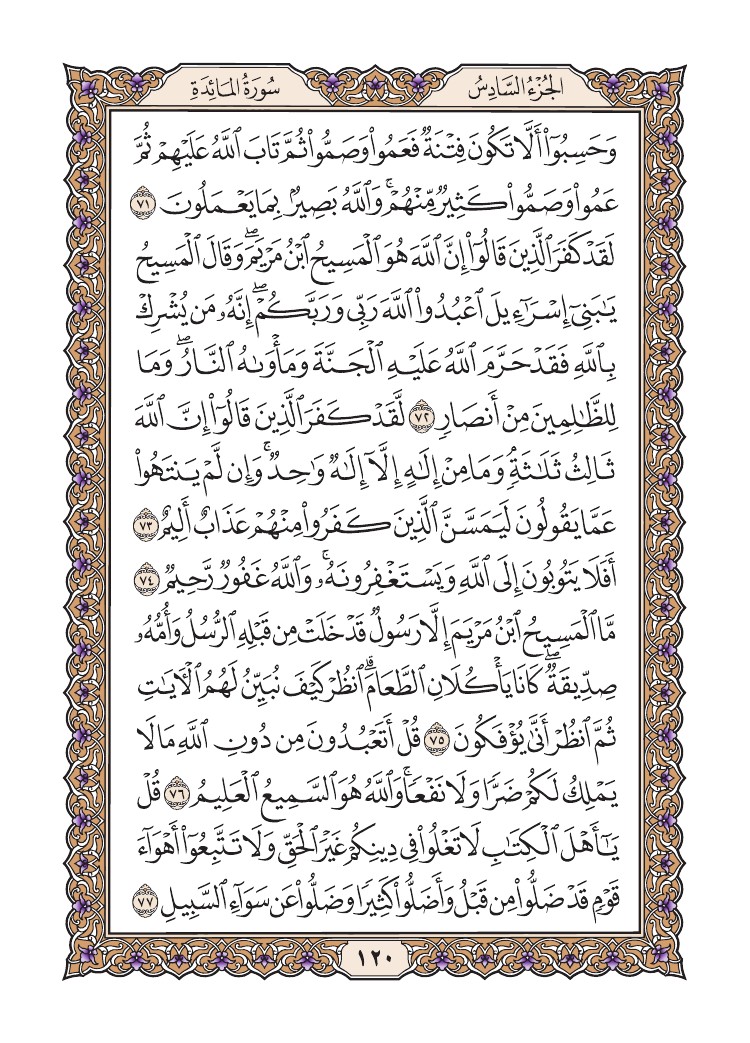 الجُزْءُ السَّادِسُ
سُورَةُ المَائِدَةِ
وَحَسِبُوٓا۟ أَلَّا تَكُونَ فِتْنَةٌ فَعَمُوا۟ وَصَمُّوا۟ ثُمَّ تَابَ ٱللَّهُ عَلَيْهِمْ ثُمَّ
عَمُوا۟ وَصَمُّوا۟ كَثِيرٌ مِّنْهُمْ ۚ وَٱللَّهُ بَصِيرٌۢ بِمَا يَعْمَلُونَ ٧١
لَقَدْ كَفَرَ ٱلَّذِينَ قَالُوٓا۟ إِنَّ ٱللَّهَ هُوَ ٱلْمَسِيحُ ٱبْنُ مَرْيَمَ ۖ وَقَالَ ٱلْمَسِيحُ
يَـٰبَنِىٓ إِسْرَٰٓءِيلَ ٱعْبُدُوا۟ ٱللَّهَ رَبِّى وَرَبَّكُمْ ۖ إِنَّهُۥ مَن يُشْرِكْ
بِٱللَّهِ فَقَدْ حَرَّمَ ٱللَّهُ عَلَيْهِ ٱلْجَنَّةَ وَمَأْوَىٰهُ ٱلنَّارُ ۖ وَمَا
لِلظَّـٰلِمِينَ مِنْ أَنصَارٍ ٧٢ لَّقَدْ كَفَرَ ٱلَّذِينَ قَالُوٓا۟ إِنَّ ٱللَّهَ
ثَالِثُ ثَلَـٰثَةٍ ۘ وَمَا مِنْ إِلَـٰهٍ إِلَّآ إِلَـٰهٌ وَٰحِدٌ ۚ وَإِن لَّمْ يَنتَهُوا۟
عَمَّا يَقُولُونَ لَيَمَسَّنَّ ٱلَّذِينَ كَفَرُوا۟ مِنْهُمْ عَذَابٌ أَلِيمٌ ٧٣
أَفَلَا يَتُوبُونَ إِلَى ٱللَّهِ وَيَسْتَغْفِرُونَهُۥ ۚ وَٱللَّهُ غَفُورٌ رَّحِيمٌ ٧٤
مَّا ٱلْمَسِيحُ ٱبْنُ مَرْيَمَ إِلَّا رَسُولٌ قَدْ خَلَتْ مِن قَبْلِهِ ٱلرُّسُلُ وَأُمُّهُۥ
صِدِّيقَةٌ ۖ كَانَا يَأْكُلَانِ ٱلطَّعَامَ ۗ ٱنظُرْ كَيْفَ نُبَيِّنُ لَهُمُ ٱلْـَٔايَـٰتِ
ثُمَّ ٱنظُرْ أَنَّىٰ يُؤْفَكُونَ ٧٥ قُلْ أَتَعْبُدُونَ مِن دُونِ ٱللَّهِ مَا لَا
يَمْلِكُ لَكُمْ ضَرًّا وَلَا نَفْعًا ۚ وَٱللَّهُ هُوَ ٱلسَّمِيعُ ٱلْعَلِيمُ ٧٦ قُلْ
يَـٰٓأَهْلَ ٱلْكِتَـٰبِ لَا تَغْلُوا۟ فِى دِينِكُمْ غَيْرَ ٱلْحَقِّ وَلَا تَتَّبِعُوٓا۟ أَهْوَآءَ
قَوْمٍ قَدْ ضَلُّوا۟ مِن قَبْلُ وَأَضَلُّوا۟ كَثِيرًا وَضَلُّوا۟ عَن سَوَآءِ ٱلسَّبِيلِ ٧٧
١٢٠